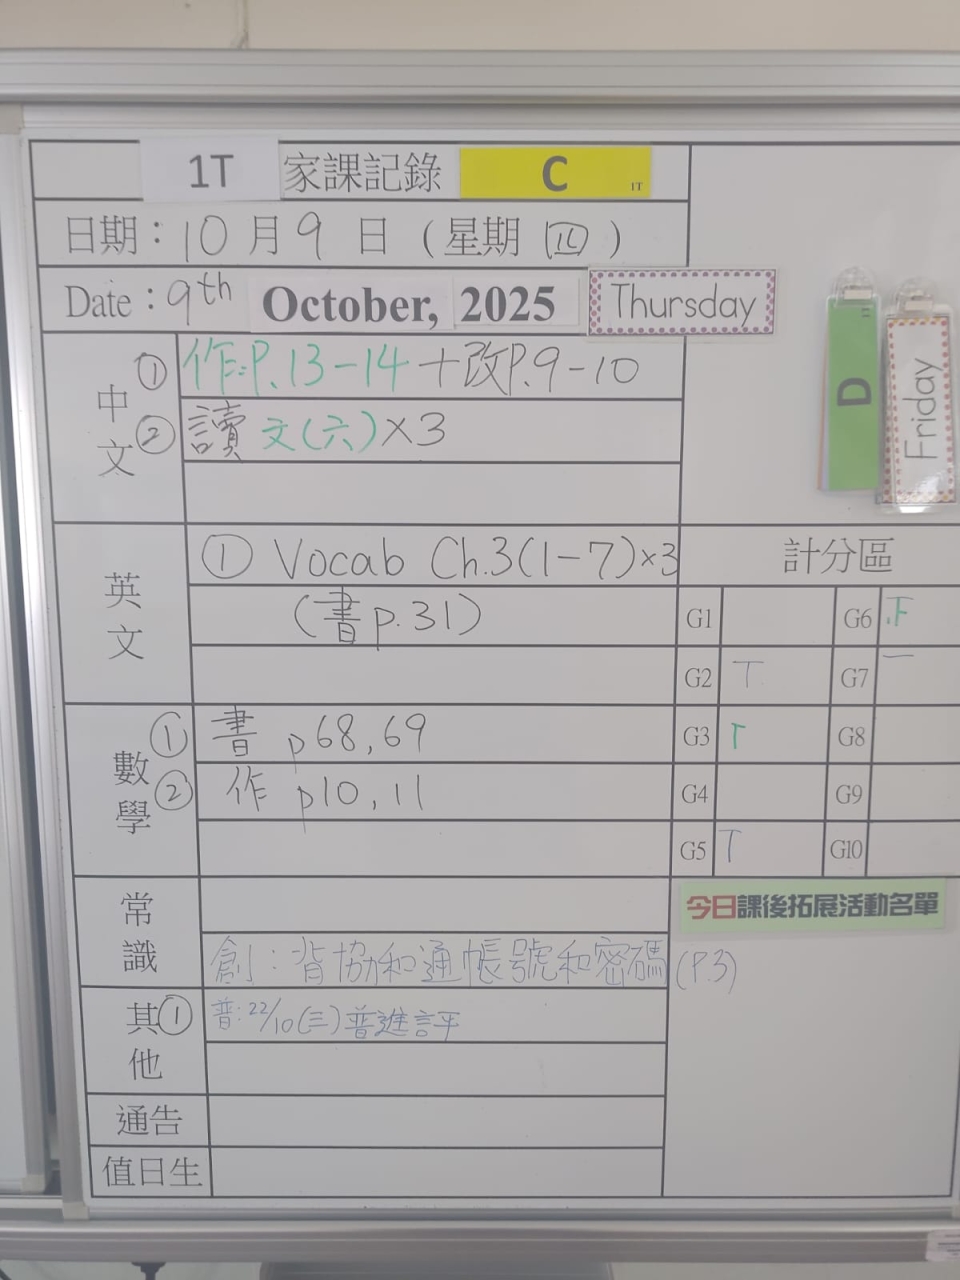 1T 家課記錄 C 1T
日期：10月9日（星期四）
Date：9th October, 2025 Thursday
D
Friday
中文
① 作:P.13-14+改P.9-10
② 讀文(六)×3
英文
① Vocab Ch.3(1-7)×3
(書p.31)
計分區
G1 G6 下
G2 T G7 一
G3 T G8
G4 G9
G5 T G10
數學
① 書 p68,69
② 作 p10,11
今日課後拓展活動名單
常識
創：背協和通帳號和密碼(P.3)
其他
① 普:22/10(三)普進評
通告
值日生